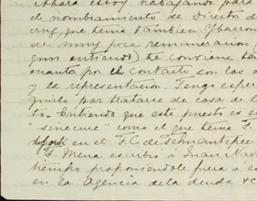 Ahora estoy trabajando para
el nombramiento de Director de
que tenia tambien Ybarro
de muy poca remuneración (
gun entiendo) te conviene
cuanto por el contacto con las
y la representación. Tengo esper
guirlo por tratarse de casa de
to. Entiendo que este puesto es
"sinecure" como el que tenia F.
en el F.C. de Tehuantepec
F. Mena escribió a Juan Nav
tiempo proponiendole fuera a
en la Agencia de la deuda